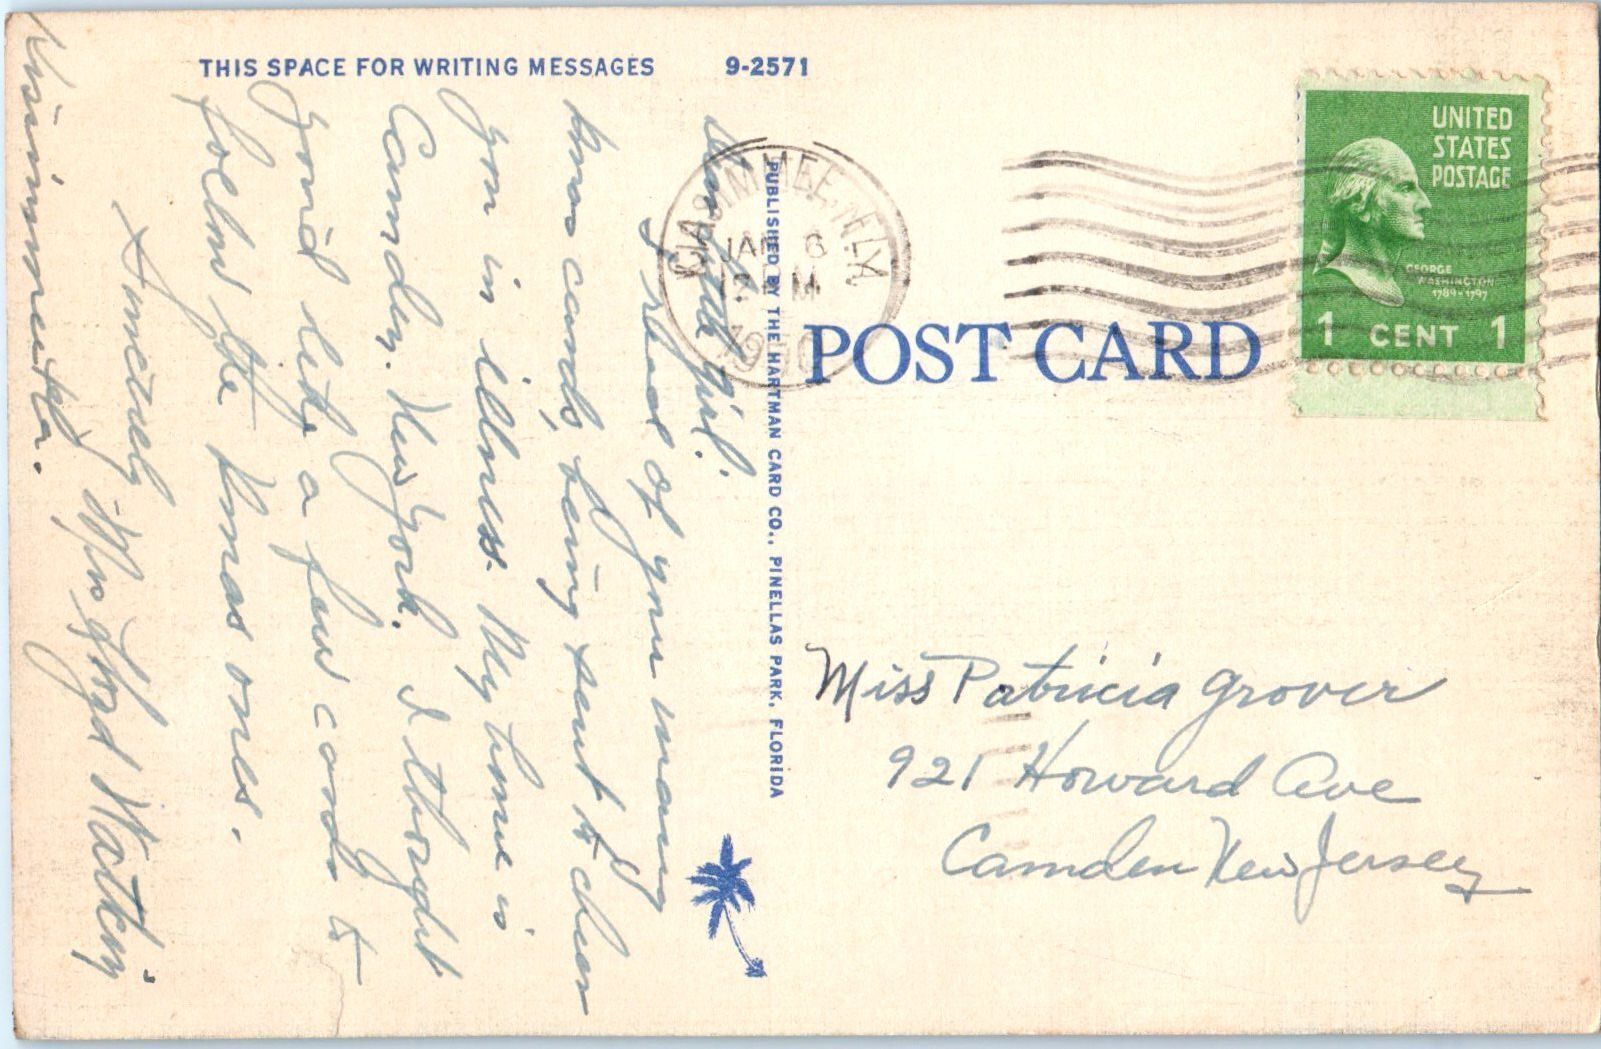 THIS SPACE FOR WRITING MESSAGES
9-2571
Dear little girl:
I read of your many
Xmas cards, being sent to cheer
you in illness. My home is
Camden, New York. I thought
you'd like a few cards to
follow the Xmas ones.
Sincerely Mrs Floyd Watkins
Kissimmee Fla.
PUBLISHED BY THE HARTMAN CARD CO., PINELLAS PARK, FLORIDA
KISSIMMEE, FLA.
JAN 6
PM
1950
POST CARD
UNITED
STATES
POSTAGE
GEORGE
WASHINGTON
1789-1797
1 CENT 1
Miss Patricia Grover
921 Howard Ave
Camden New Jersey